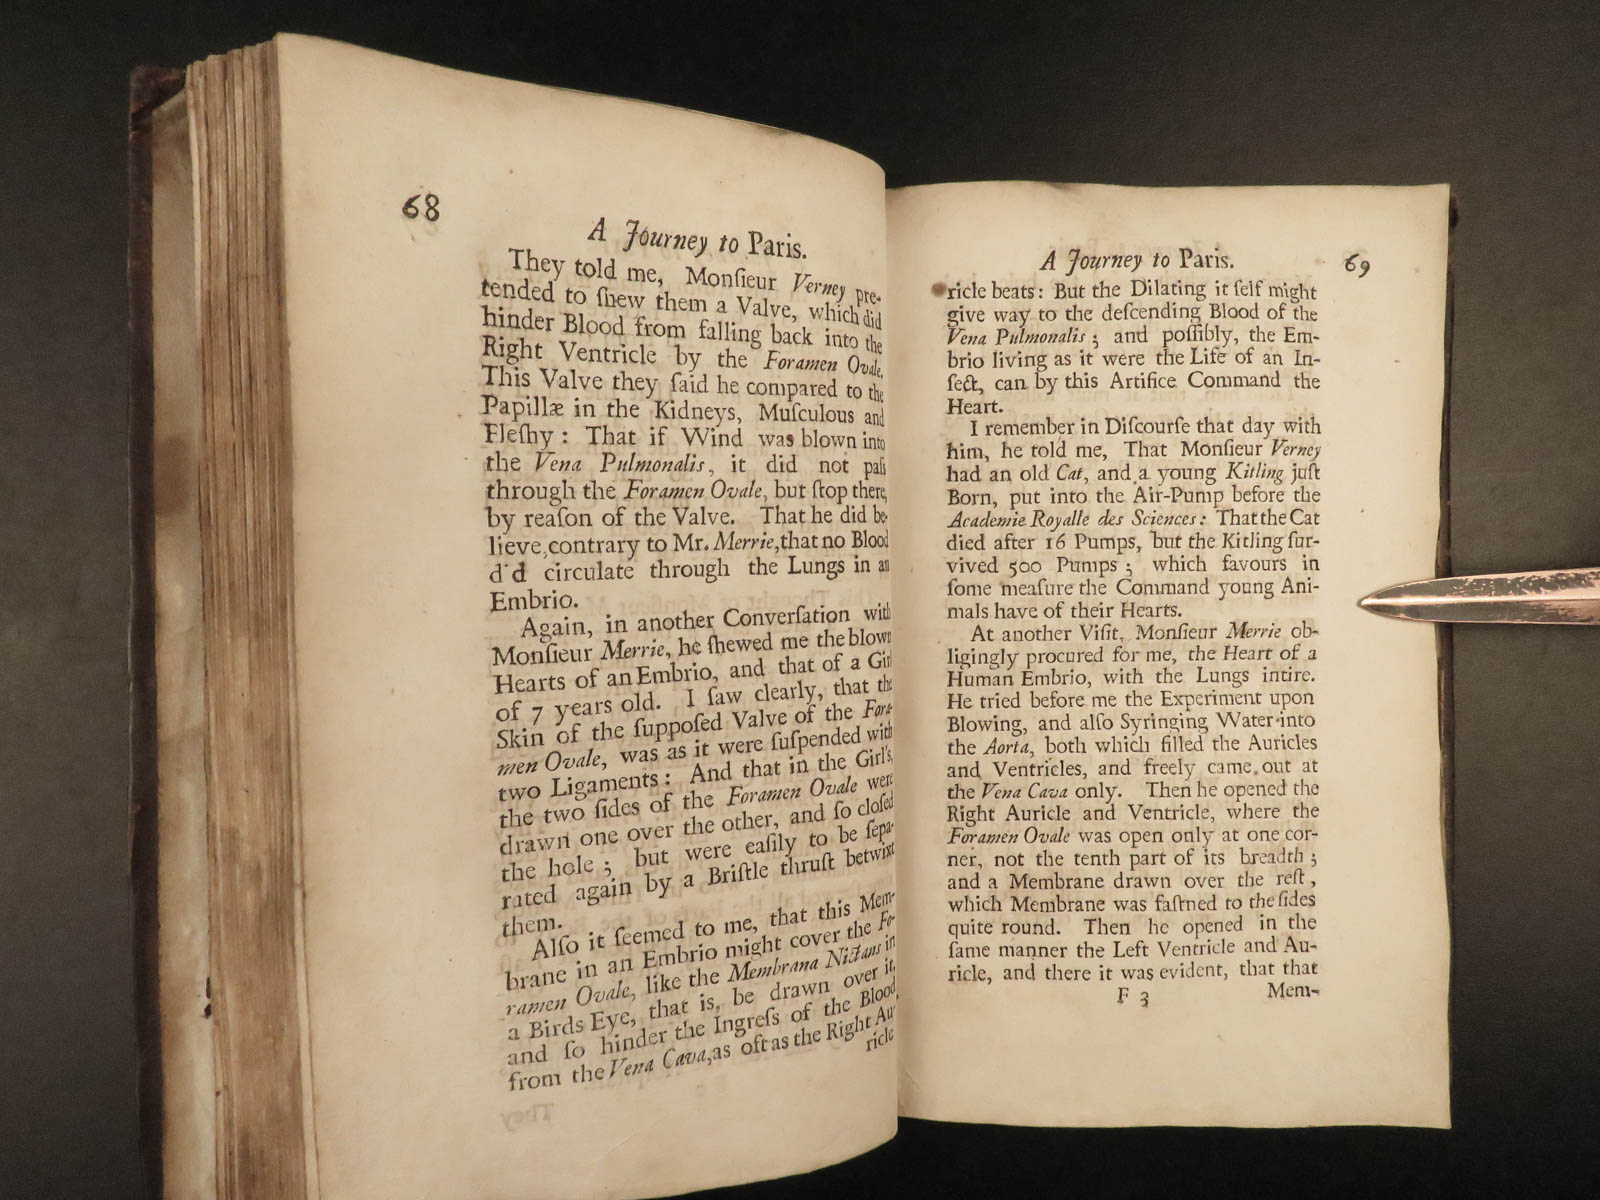 68
A Journey to Paris.
They told me, Monſieur Verney pre-
tended to ſhew them a Valve, which did
hinder Blood from falling back into the
Right Ventricle by the Foramen Ovale.
This Valve they ſaid he compared to the
Papillæ in the Kidneys, Muſculous and
Fleſhy: That if Wind was blown into
the Vena Pulmonalis, it did not paſs
through the Foramen Ovale, but ſtop there,
by reaſon of the Valve. That he did be-
lieve, contrary to Mr. Merrie, that no Blood
d'd circulate through the Lungs in an
Embrio.
Again, in another Converſation with
Monſieur Merrie, he ſhewed me the blown
Hearts of an Embrio, and that of a Girl
of 7 years old. I ſaw clearly, that the
Skin of the ſuppoſed Valve of the Fora-
men Ovale, was as it were ſuſpended with
two Ligaments: And that in the Girl's,
the two ſides of the Foramen Ovale were
drawn one over the other, and ſo cloſed
the hole; but were eaſily to be ſepa-
rated again by a Briſtle thruſt betwixt
them.
Alſo it ſeemed to me, that this Mem-
brane in an Embrio might cover the Fo-
ramen Ovale, like the Membrana Nictans in
a Birds Eye, that is, be drawn over it,
and ſo hinder the Ingreſs of the Blood
from the Vena Cava, as oft as the Right Au-
ricle
A Journey to Paris. 69
ricle beats: But the Dilating it ſelf might
give way to the deſcending Blood of the
Vena Pulmonalis; and poſſibly, the Em-
brio living as it were the Life of an In-
ſect, can by this Artifice Command the
Heart.
I remember in Diſcourſe that day with
him, he told me, That Monſieur Verney
had an old Cat, and a young Kitling juſt
Born, put into the Air-Pump before the
Academie Royalle des Sciences: That the Cat
died after 16 Pumps, but the Kitling ſur-
vived 500 Pumps; which favours in
ſome meaſure the Command young Ani-
mals have of their Hearts.
At another Viſit, Monſieur Merrie ob-
ligingly procured for me, the Heart of a
Human Embrio, with the Lungs intire.
He tried before me the Experiment upon
Blowing, and alſo Syringing Water into
the Aorta, both which filled the Auricles
and Ventricles, and freely came out at
the Vena Cava only. Then he opened the
Right Auricle and Ventricle, where the
Foramen Ovale was open only at one cor-
ner, not the tenth part of its breadth;
and a Membrane drawn over the reſt,
which Membrane was faſtned to the ſides
quite round. Then he opened in the
ſame manner the Left Ventricle and Au-
ricle, and there it was evident, that that
F 3 Mem-